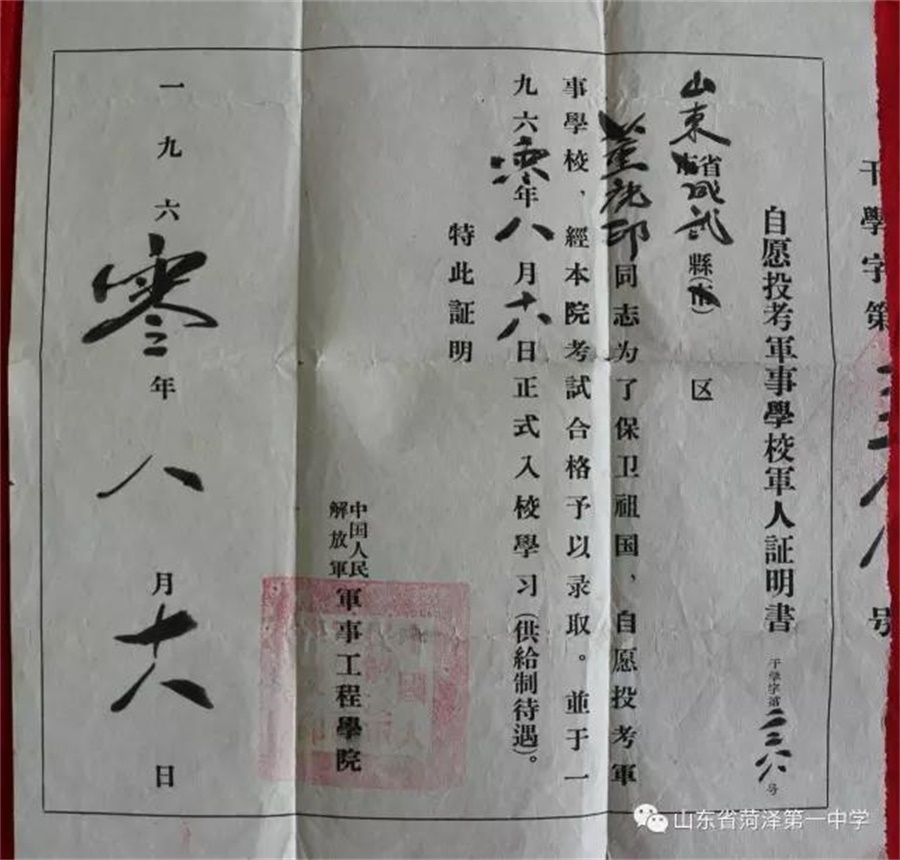 干學字第二二八八号
自愿投考軍事學校軍人証明書 干學字第二二八八号
山東省成武縣(市) 区
董流印同志为了保卫祖国，自愿投考軍
事學校，經本院考試合格予以录取。並于一
九六零年八月十八日正式入校學习(供給制待遇)。
特此証明
中国人民解放軍軍事工程學院
一九六零年八月十八日
山东省菏泽第一中学